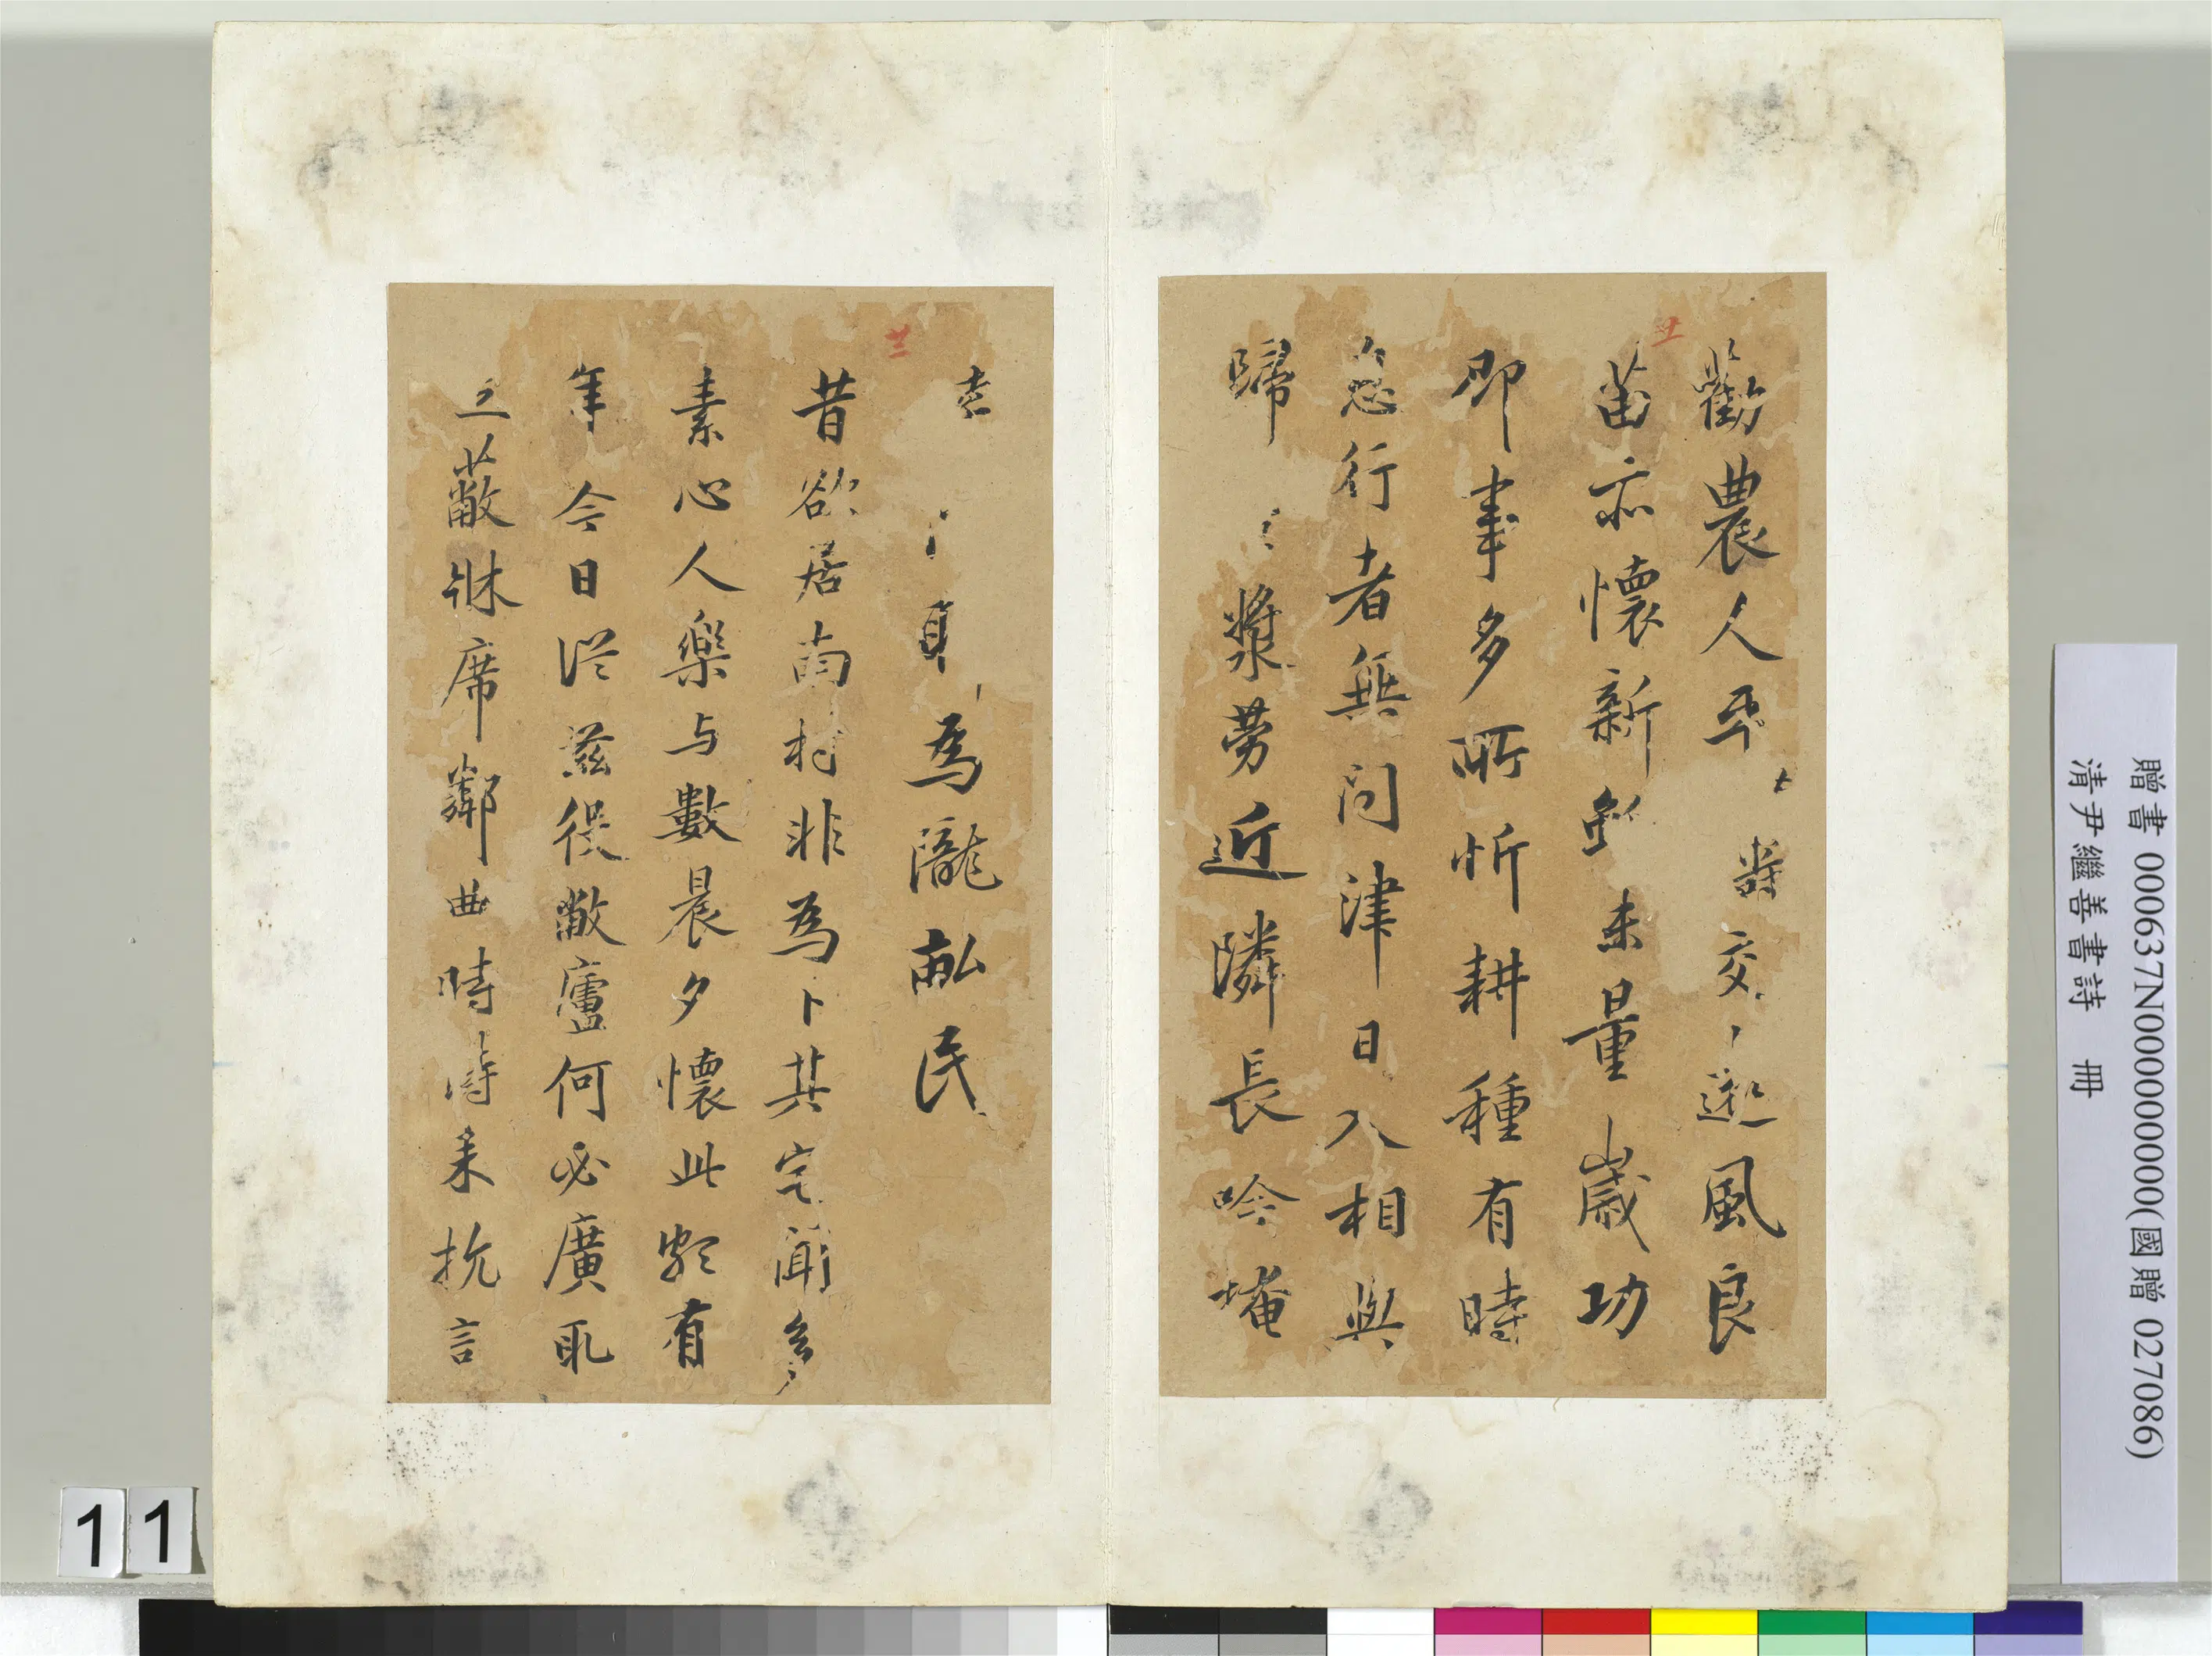 勸農人平 疇交 遠風良
苗亦懷新雖未量歲功
即事多所忻耕種有時
息行者無問津日入相與
歸 漿勞近隣長吟掩
為隴畝民
昔欲居南村非為卜其宅聞多
素心人樂与數晨夕懷此頗有
年今日從茲役敝廬何必廣取
蔽牀席鄰曲時時來抗言
贈書 000637N000000000(國贈 027086)
清尹繼善書詩 冊
11